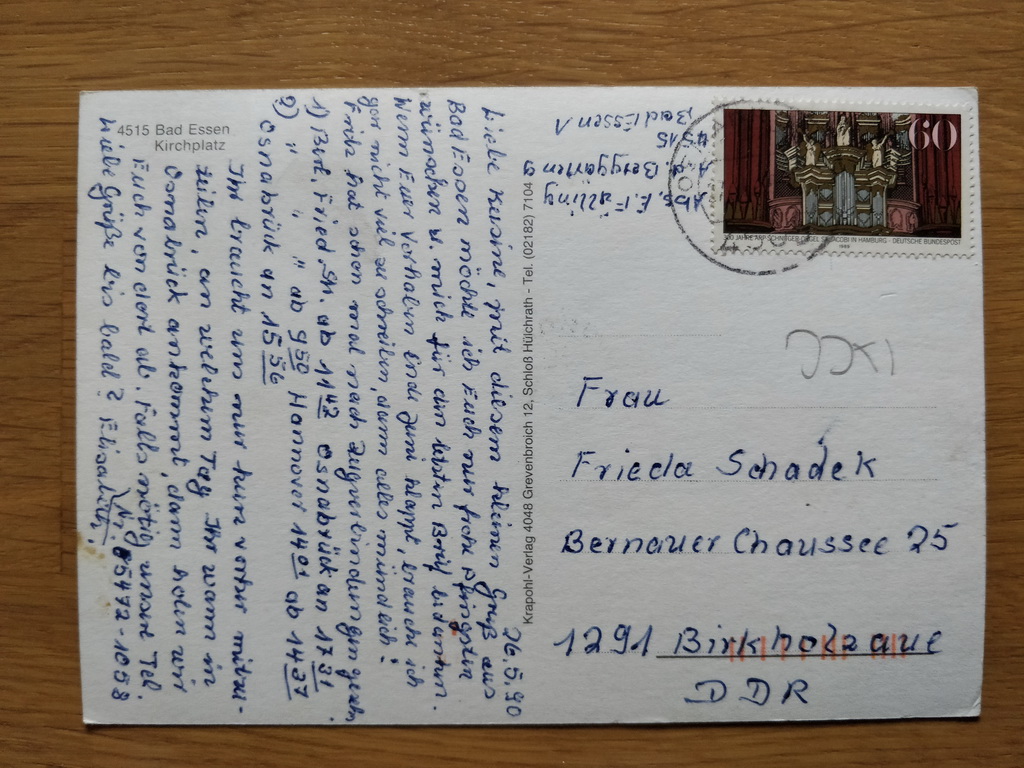 4515 Bad Essen
Kirchplatz
26.5.90
Liebe Kusine, mit diesem kleinen Gruß aus
Bad Essen möchte ich Euch nur frohe Pfingsten
wünschen u. mich für den letzten Brief bedanken.
Wenn Euer Vorhaben Ende Juni klappt, brauche ich
gar nicht viel zu schreiben, dann alles mündlich!
Fritz hat schon mal nach Zugverbindungen gesehn,
1) Bln. Fried.Str. ab 11 42 Osnabrück an 17 31
2) " " " ab 9 50 Hannover 14 01 ab 14 37
Osnabrück an 15 56
Ihr braucht uns nur kurz vorher mitzu-
teilen, an welchem Tag Ihr wann in
Osnabrück ankommt, dann holen wir
Euch von dort ab. Falls nötig unsere Tel.
Nr. 05472-1058
Liebe Grüße bis bald? Elisabeth.
Krapohl-Verlag 4048 Grevenbroich 12, Schloß Hülchrath - Tel. (02182) 7104
Abs. E. Fälling
Berggarten 9
4515
Bad Essen 1
60
300 JAHRE ARP-SCHNITGER-ORGEL ST. JACOBI IN HAMBURG - DEUTSCHE BUNDESPOST
1989
Frau
Frieda Schadek
Bernauer Chaussee 25
1291 Birkholzaue
DDR